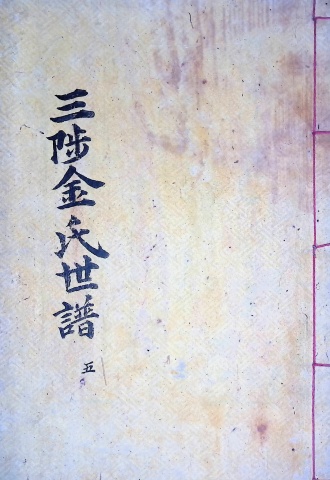 三陟金氏世譜
五